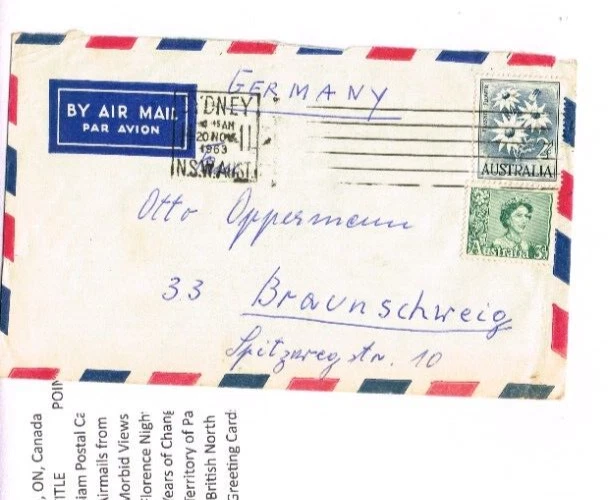 GERMANY
BY AIR MAIL
PAR AVION
SYDNEY
45AM
20 NOV
1963
N.S.W. AUST.
2/-
AUSTRALIA
AUSTRALIA 3D
Otto Oppermann
33 Braunschweig
Spitzwegstr. 10
, ON, Canada
ITLE POIN
iam Postal Ca
Airmails from
Morbid Views
Florence Nigh
Years of Chang
Territory of Pa
British North
Greeting Cards